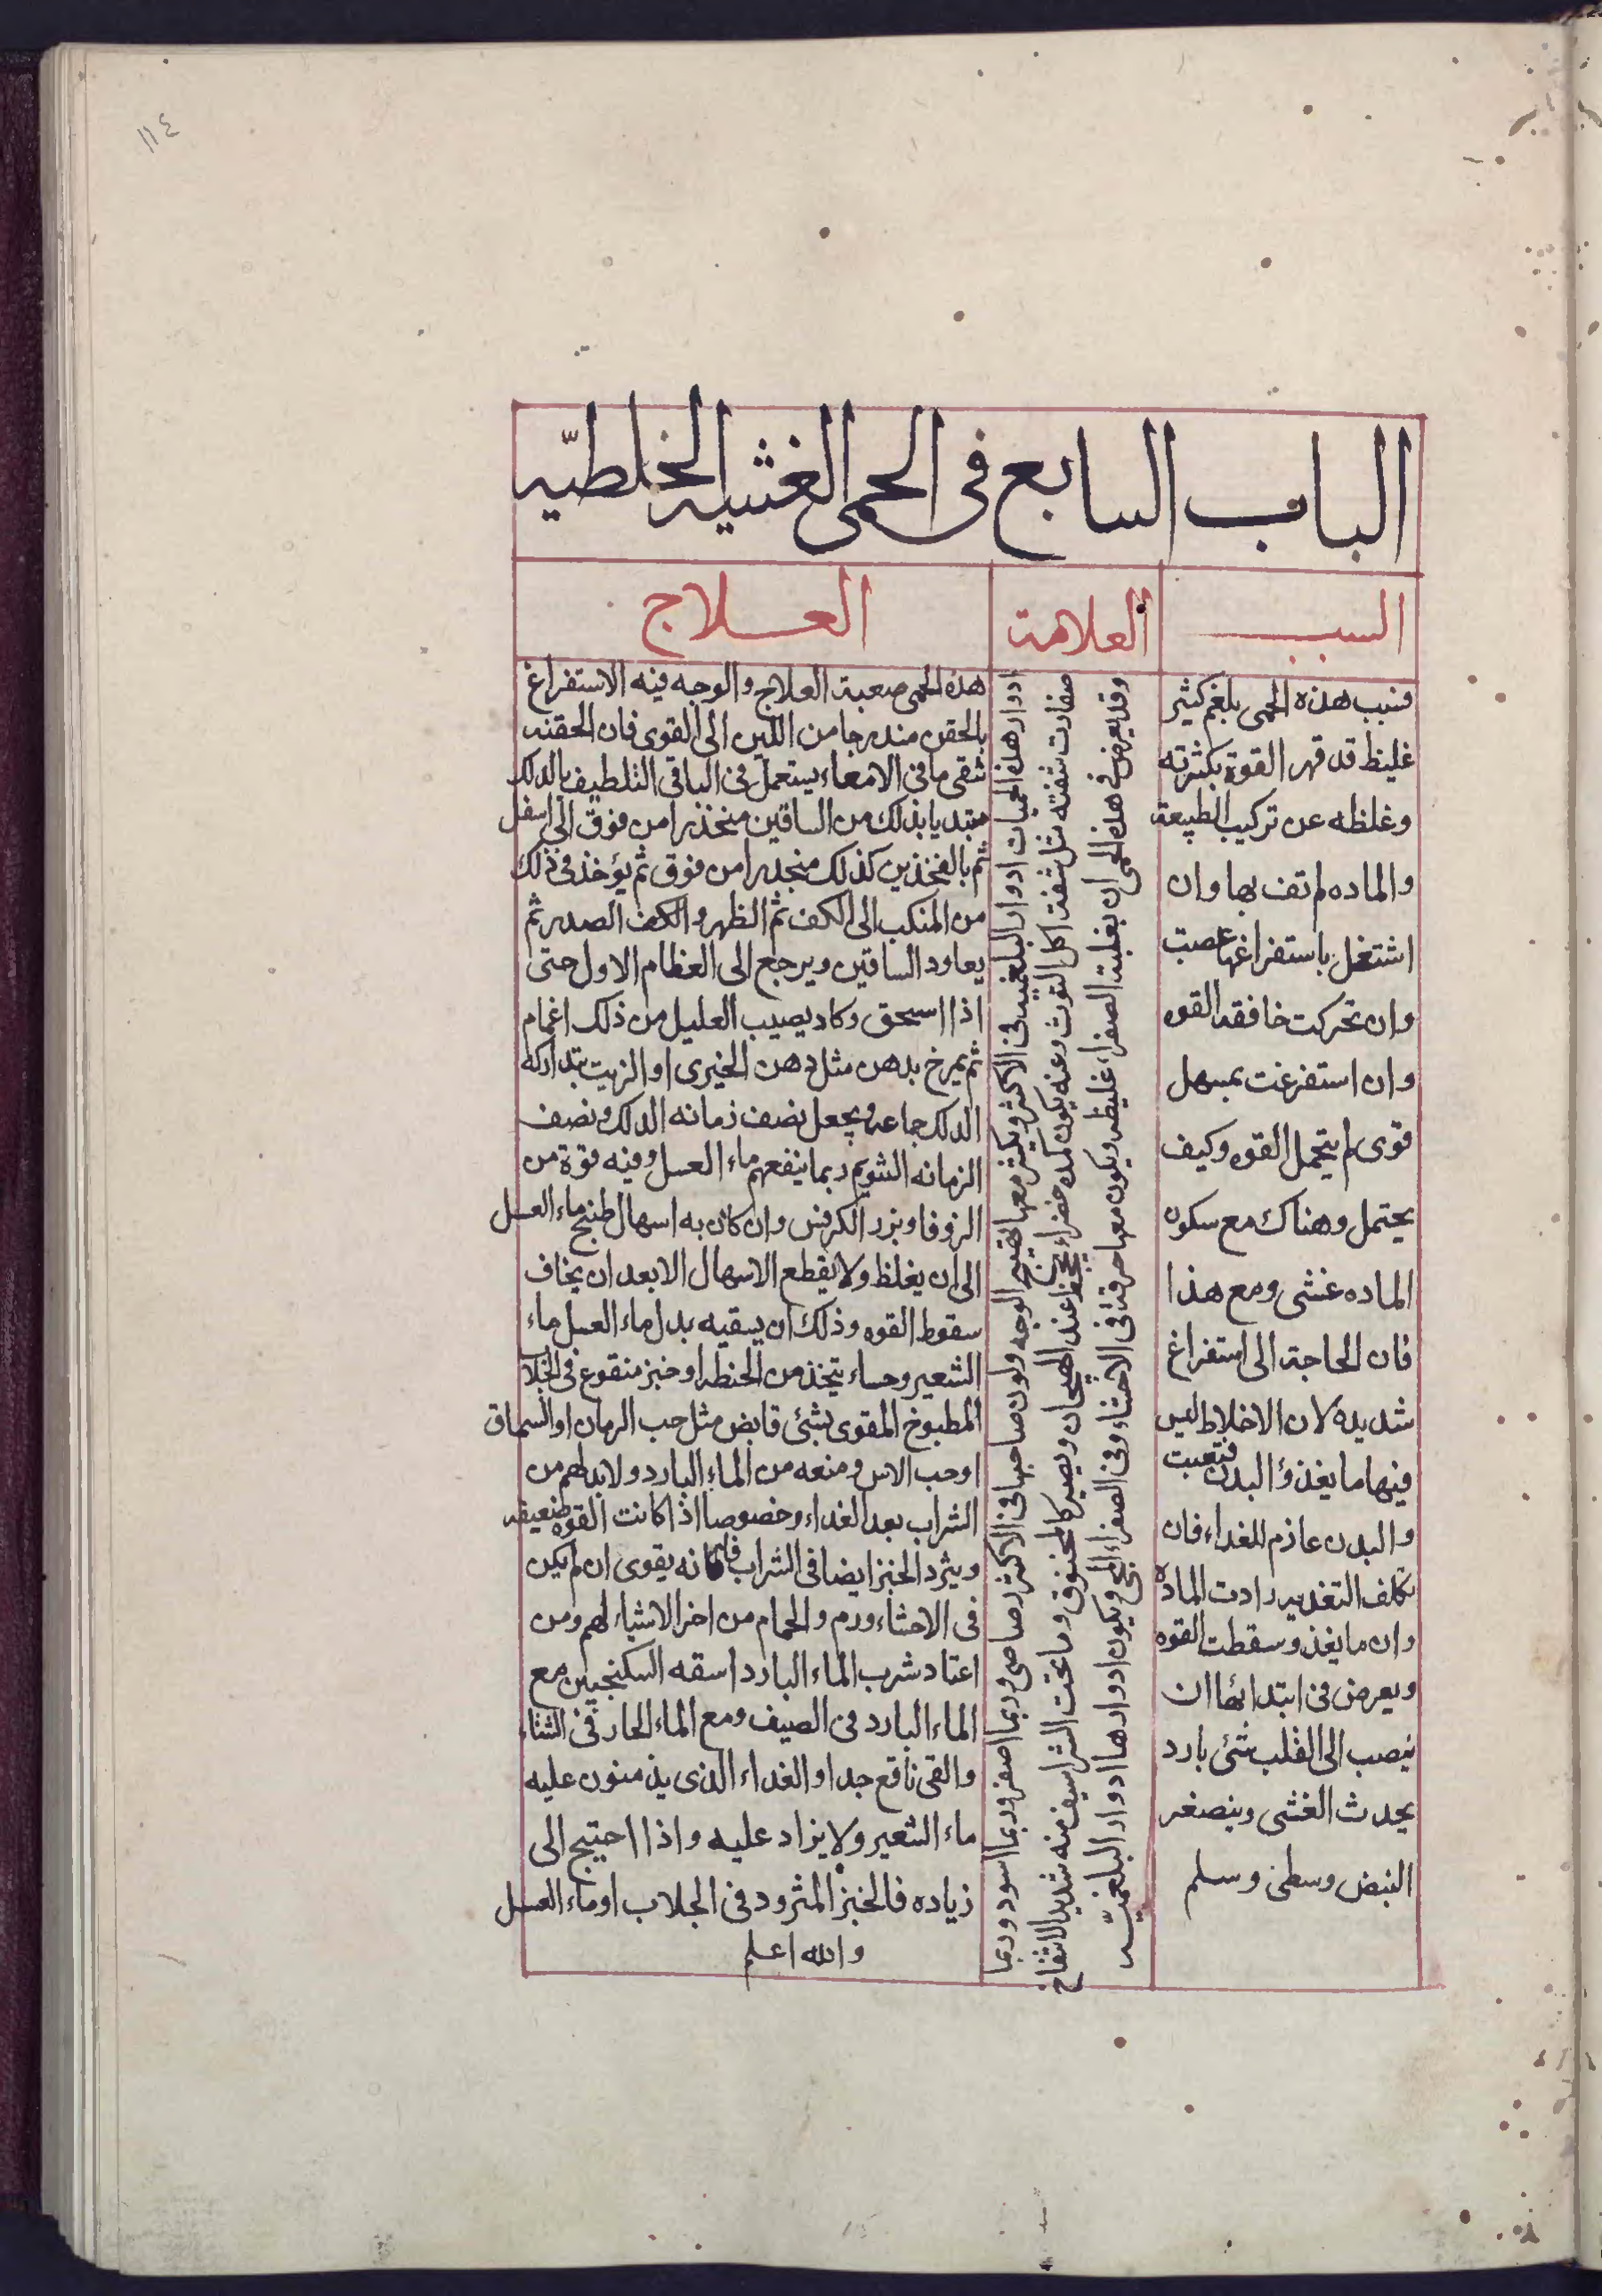 ١١٤
الباب السابع فى الحمى الغشيه الخلطيّه
السبب
العلامة
العلاج
فسبب هذه الحمى بلغم كثير
غليظ قد قهر القوة بكثرته
وغلظه عن تركيب الطبيعة
والماده لم تف بها وان
اشتغل باستفراغها عصت
وان تحركت خافقه القوه
وان استفرغت بمسهل
قوى لم يتحمل القوه وكيف
يحتمل وهناك مع سكون
الماده غشى ومع هذا
فان الحاجة الى استفراغ
شديده لان الاخلاط ليس
فيها ما يغذؤ البدن فتعبت
والبدن عاذم للغداء فان
تكلف التغديه زادت المادة
وان ما يغذ وسقطت القوه
ويعرض فى ابتدائها ان
ينصب الى القلب شئ بارد
يحدث الغشى وينصغر
النبض وسطى وسلم
ادوار هذه الحميات ادوار البلغميه فى الاكثر ويكثر معها تهيج الوجه ولون صاحبها فى الاكثر رصاصى وربما اصفر وربما اسود وربما
صفارت شفته مثل شفة اكل التوث وعنه يكون كمده خضراء يجحظ عند الهيجان ويصير كالمخنوق وما تحت الشراسيف منه شديد الانتفاخ
وقد يعرض فى هذه الحمى ان بغلبة الصفراء غليظه ويكون معها حرقة فى الاحشاء وفى الصفراء المحى ويكون ادوارها ادوار البلغميّه
هذه الحمى صعبة العلاج والوجه فيه الاستفراغ
بالحقن مندرجا من اللين الى القوى فان الحقنه
تنقى ما فى الامعاء يستعمل فى الباقى التلطيف بالدلك
مبتديا بذلك من الساقين منحذرا من فوق الى اسفل
ثم بالفخذين كذلك منجدرا من فوق ثم يؤخذ فى ذلك
من المنكب الى الكف ثم الظهر والكف الصدر ثم
يعاود الساقين ويرجع الى العظام الاول حتى
اذا اسحق وكاد يصيب العليل من ذلك اغمام
ثم يمرخ بدهن مثل دهن الخيرى او الزيت بتداركه
الدلك جماعه ويجعل نصف زمانه الدلك ونصف
الزمانه التنويم ربما ينفعهم ماء العسل وفيه قوة من
الزوفا وبزر الكرفس وان كان به اسهال طبخ ماء العسل
الى ان يغلظ ولا يقطع الاسهال الا بعد ان يخاف
سقوط القوه وذلك ان يسقيه بدل ماء العسل ماء
الشعير وحساء يتخذ من الحنطه او خبز منقوع فى الجلاب
المطبوخ المقوى بشئ قابض مثل حب الرمان او السماق
او حب الاس ومنعه من الماء البارد ولا بد لهم من
الشراب بعد الغداء وخصوصا اذا كانت القوه ضعيفه
ويثرد الخبز ايضا فى الشراب فانه يقوى ان لم يكن
فى الاحشاء ورم والحمام من اضر الاشياء لهم ومن
اعتاد شرب الماء البارد اسقه السكنجبين مع
الماء البارد فى الصيف ومع الماء الحار فى الشتاء
والقى نافع جدا والغداء الذى يذمنون عليه
ماء الشعير ولا يزاد عليه واذا احتيج الى
زياده فالخبز المثرود فى الجلاب او ماء العسل
والله اعلم